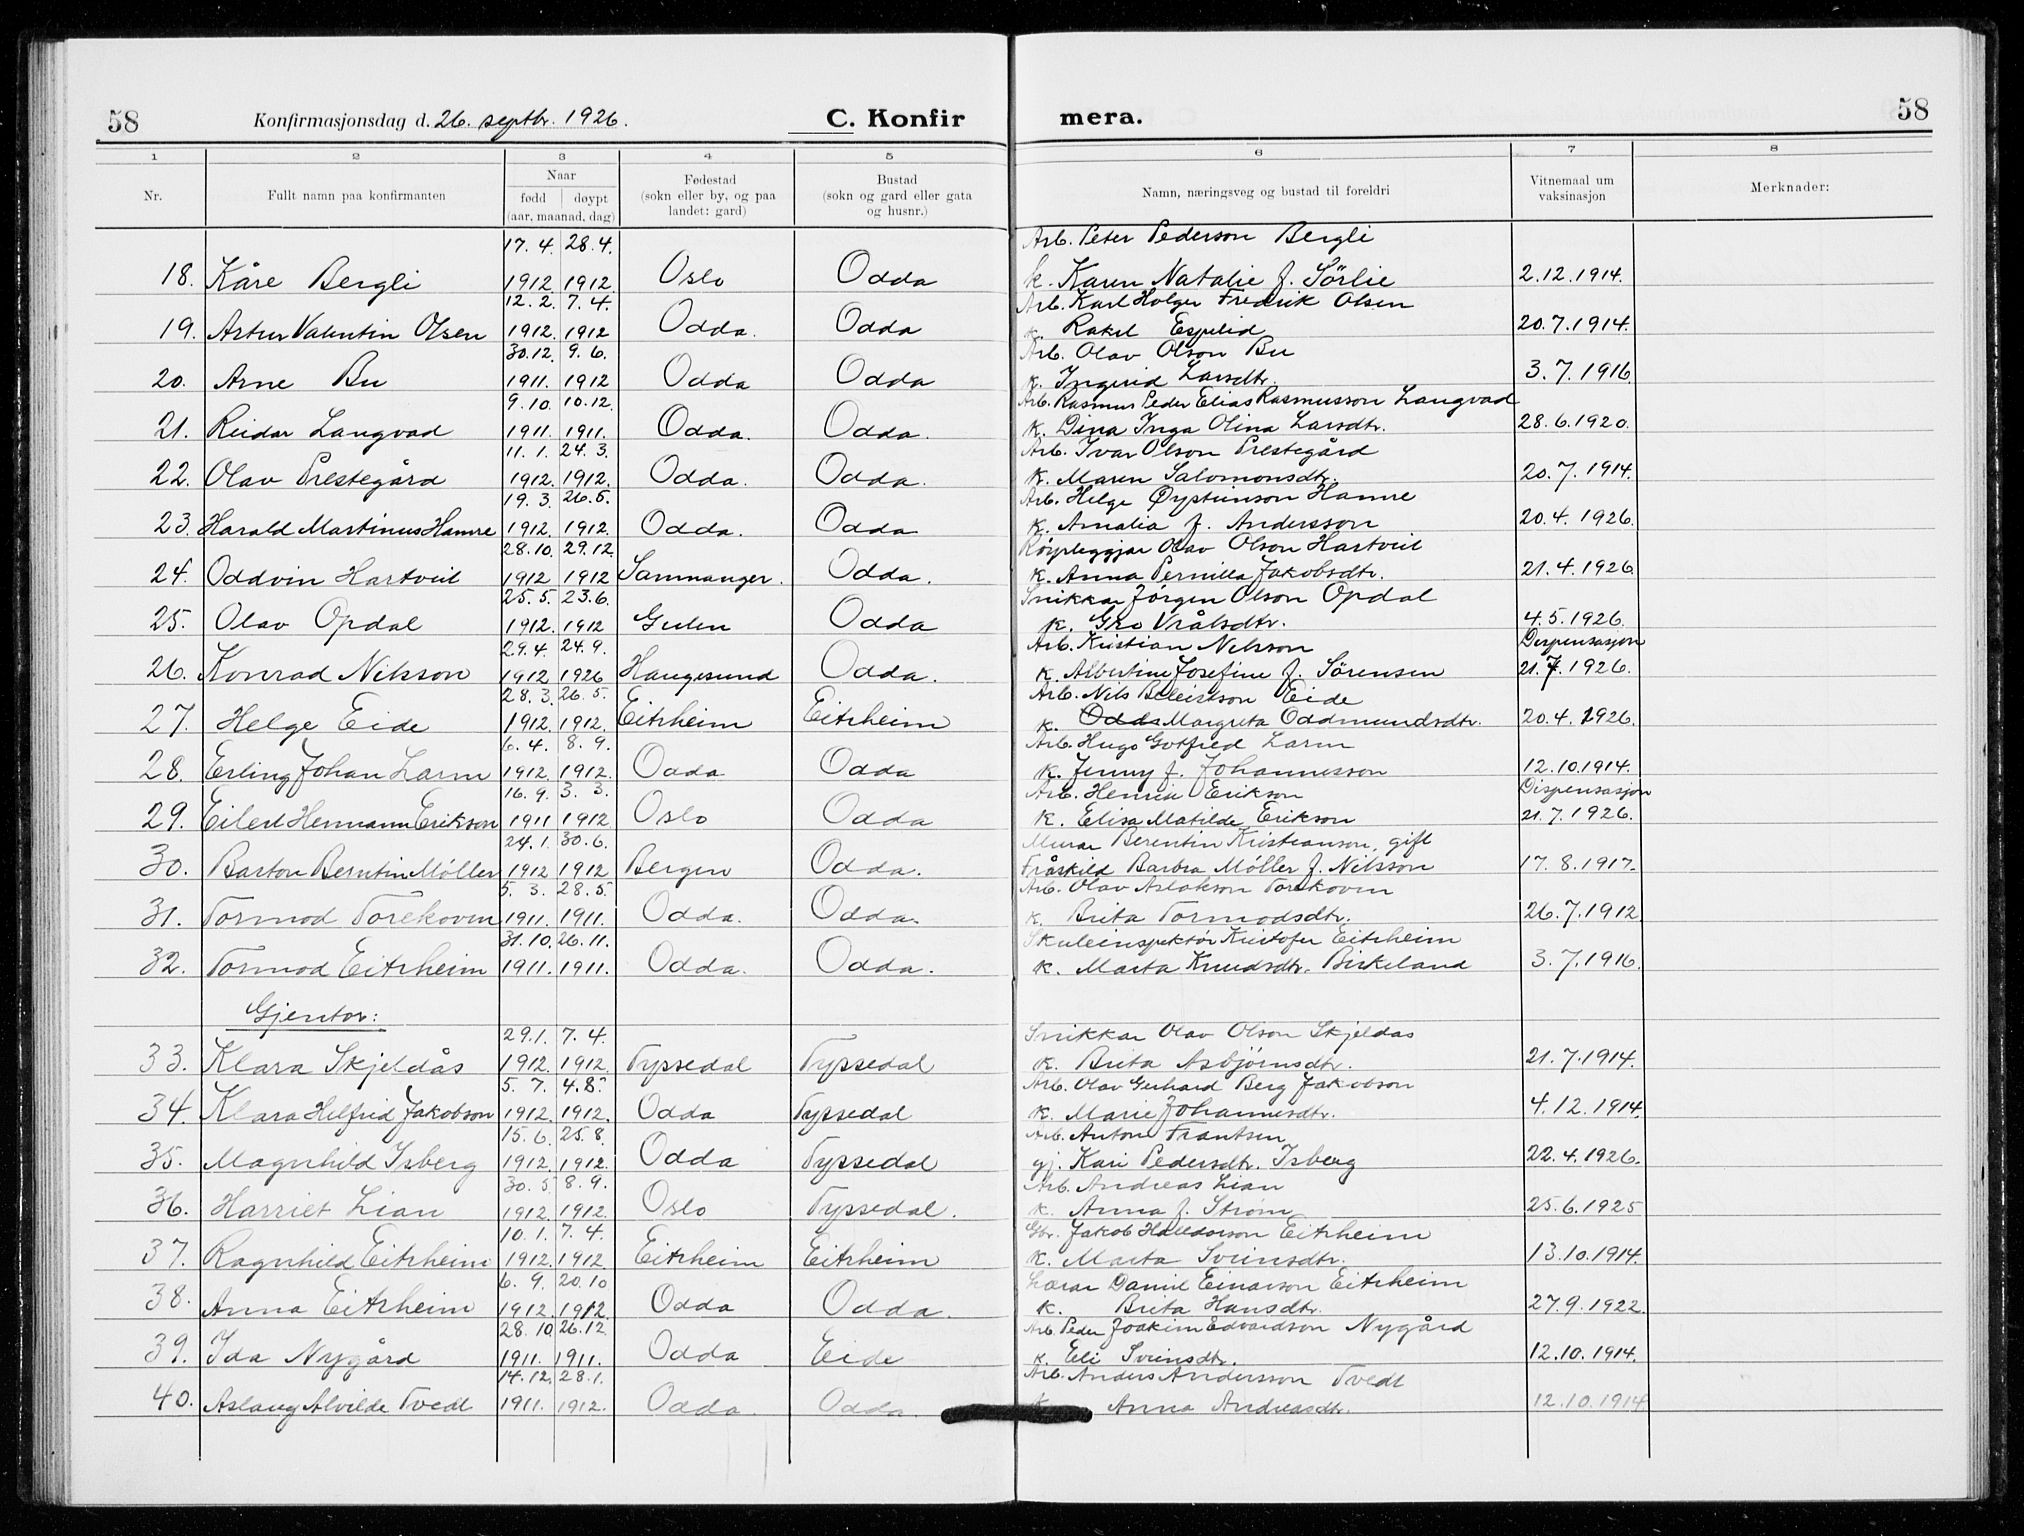 58 Konfirmasjonsdag d. 26. septbr. 1926. C. Konfir mera. 58
1 2 3 4 5 6 7 8
Nr. Fullt namn paa konfirmanten Naar Fødestad Bustad Namn, næringsveg og bustad til foreldri Vitnemaal um Merknader:
fødd døypt (sokn eller by, og paa (sokn og gard eller gata vaksinasjon
(aar, maanad, dag) landet: gard) og husnr.)
17. 4. 28. 4. Arb. Peter Pederson Bergli
18. Kåre Bergli 1912 1912. Oslo Odda k. Karen Natalie f. Sörlie 2.12.1914.
12. 2. 7. 4. Arb. Karl Holger Fredrik Olsen
19. Artur Valentin Olsen 1912. 1912 Odda. Odda k. Rakel Espelid 20.7.1914.
30.12. 9. 6. Arb. Olav Olson Bu
20. Arne Bu 1911. 1912 Odda Odda k. Ingerid Larsdtr. 3. 7. 1916.
9. 10. 10. 12. Arb. Rasmus Peder Elias Rasmusson Langvad
21. Reidar Langvad 1911. 1911. Odda. Odda. k. Dina Inga Olina Larsdtr. 28.6.1920.
11. 1. 24. 3. Arb. Ivar Olson Prestegård
22. Olav Prestegård 1912 1912. Odda. Odda. k. Maren Salomonsdtr. 20. 7. 1914.
19. 3. 26. 5. Arb. Helge Øysteinson Hamre
23. Harald Martinus Hamre 1912. 1912. Odda. Odda k. Amalia f. Andersson 20.4. 1926.
28. 10. 29. 12. Røyrleggjar Olav Olson Hartveit
24. Oddvin Hartveit 1912 1912 Samnanger. Odda. k. Anna Pernilla Jakobsdtr. 21. 4. 1926.
25. 5. 23. 6. Snikkar Jörgen Olson Opdal
25. Olav Opdal 1912. 1912 Gulen Odda k. Gro Vrålsdtr. 4. 5. 1926.
29. 4. 24. 9. Arb. Kristian Nilsson Dispensasjon
26. Konrad Nilsson 1912 1926 Haugesund Odda. k. Albertine Josefine f. Sörensen 21. 7. 1926.
28. 3. 26. 5. Arb. Nils Eide
27. Helge Eide 1912. 1912. Eitrheim Eitrheim k. Odda Margreta Oddmundsdtr. 20. 4. 1926.
6. 4. 8. 9. Arb. Hugo Gotfred Larm
28. Erling Johan Larm 1912. 1912. Odda Odda k. Jenny f. Johannesson 12.10.1914.
16. 9. 3. 3. Arb. Henrik Erikson Dispensasjon
29. Eilert Hermann Erikson 1911 1912 Oslo Odda k. Elisa Matilde Erikson 21. 7. 1926.
24. 1. 30. 6. Murar Berentin Kristianson, gift
30. Barton Berntin Möller 1912 1912 Bergen Odda. Fråskild Barbra Möller f. Nilsson 17. 8. 1917.
5. 3. 28. 5. Arb. Olav Aslakson Torekoven
31. Tormod Torekoven 1911. 1911. Odda. Odda. k. Brita Tormodsdtr. 26.7.1912
31. 10. 26. 11. Skuleinspektör Kristofer Eitrheim
32. Tormod Eitrheim 1911. 1911. Odda. Odda. k. Marta Knudsdtr. Birkeland 3. 7. 1916.
Gjentor:
29. 1. 7. 4. Snikkar Olav Olson Skjeldås
33. Klara Skjeldås 1912. 1912. Tyssedal Tyssedal k. Brita Asbjörnsdtr. 21. 7. 1914.
5. 7. 4. 8. Arb. Olav Gerhard Berg Jakobson
34. Klara Helfrid Jakobson 1912. 1912. Odda Tyssedal k. Marie Johannesdtr. 4. 12. 1914.
15. 6. 25. 8. Arb. Anton Frantsen
35. Magnhild Isberg 1912. 1912. Odda Tyssedal gj. Kari Pedersdtr. Isberg 22. 4. 1926.
30. 5 8. 9. Arb. Andreas Lian
36. Harriet Lian 1912. 1912. Oslo Tyssedal. k. Anna f. Ström 25. 6. 1925
10. 1. 7. 4. Gbr. Jakob Halldorson Eitrheim
37. Ragnhild Eitrheim 1912. 1912 Eitrheim Eitrheim k. Marta Sveinsdtr. 13.10.1914.
6. 9. 20. 10 Lærar Daniel Einarson Eitrheim
38. Anna Eitrheim 1912. 1912. Odda Odda. k. Brita Hansdtr. 27.9.1922.
28. 10. 26. 12. Arb. Peder Joakim Edvardson Nygård
39. Ida Nygård 1911. 1911. Odda Eide k. Eli Sveinsdtr. 12.10.1914.
14. 12. 28. 1. Arb. Anders Andersson Tvedt
40. Aslaug Alvilde Tvedt 1911. 1912. Odda Odda k. Anna Andreasdtr. 12.10.1914